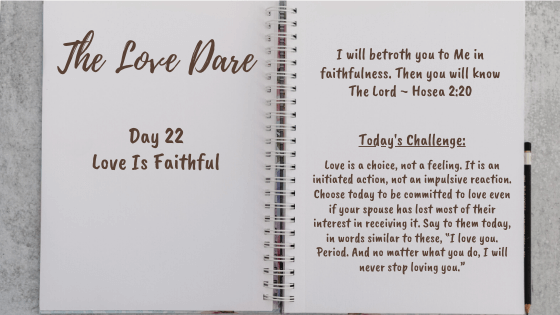 The Love Dare
Day 22
Love Is Faithful
I will betroth you to Me in
faithfulness. Then you will know
The Lord ~ Hosea 2:20
Today's Challenge:
Love is a choice, not a feeling. It is an
initiated action, not an impulsive reaction.
Choose today to be committed to love even
if your spouse has lost most of their
interest in receiving it. Say to them today,
in words similar to these, "I love you.
Period. And no matter what you do, I will
never stop loving you."